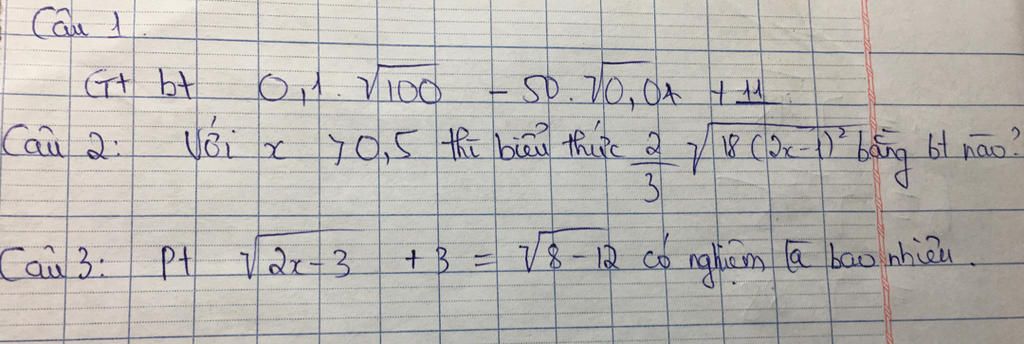 Câu 1.
Gt bt 0,1.√100 - 50.√0,04 + 11
Câu 2: Với x > 0,5 thì biểu thức 2/3 √18(2x-1)² bằng bt nào?
Câu 3: Pt √2x-3 + 3 = √8-12 có nghiệm là bao nhiêu.